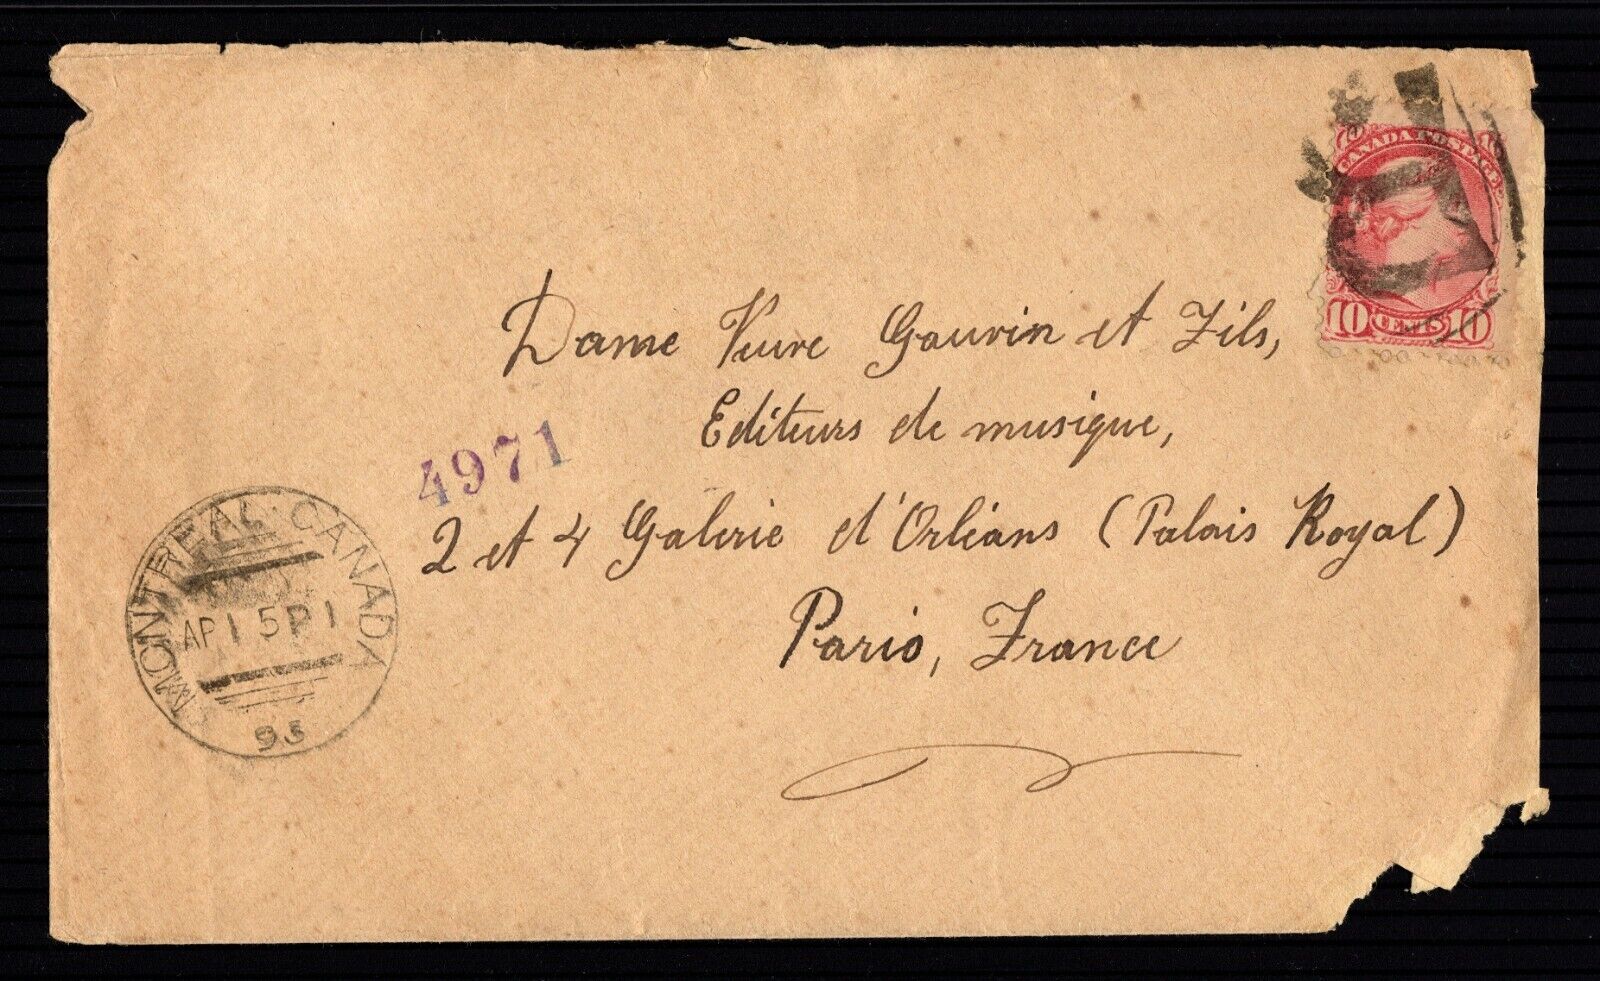 CANADA POSTAGE
10 CENTS 10
Dame Veuve Gauvin et Fils,
Editeurs de musique,
4971
2 et 4 Galerie d'Orléans (Palais Royal)
Paris, France
MONTREAL · CANADA
AP 15
93